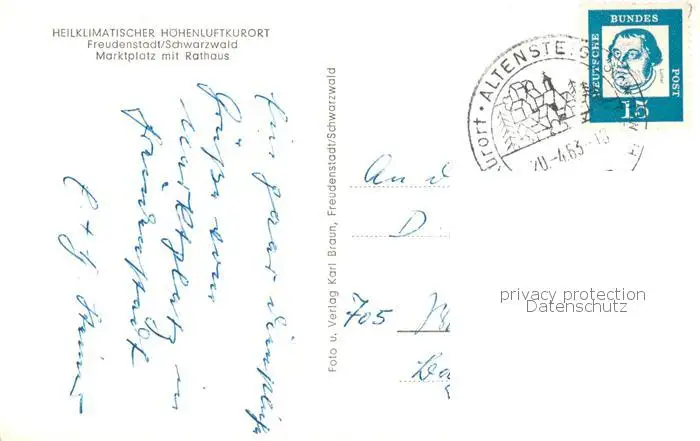 HEILKLIMATISCHER HÖHENLUFTKURORT
Freudenstadt/Schwarzwald
Marktplatz mit Rathaus
Ein paar
Grüße vom
Marktplatz in
Freudenstadt
Foto u. Verlag Karl Braun, Freudenstadt/Schwarzwald
urort · ALTENSTEIG
20.-4.63.-18
DEUTSCHE BUNDES POST
Luther
15
An d
D
705
privacy protection
Datenschutz